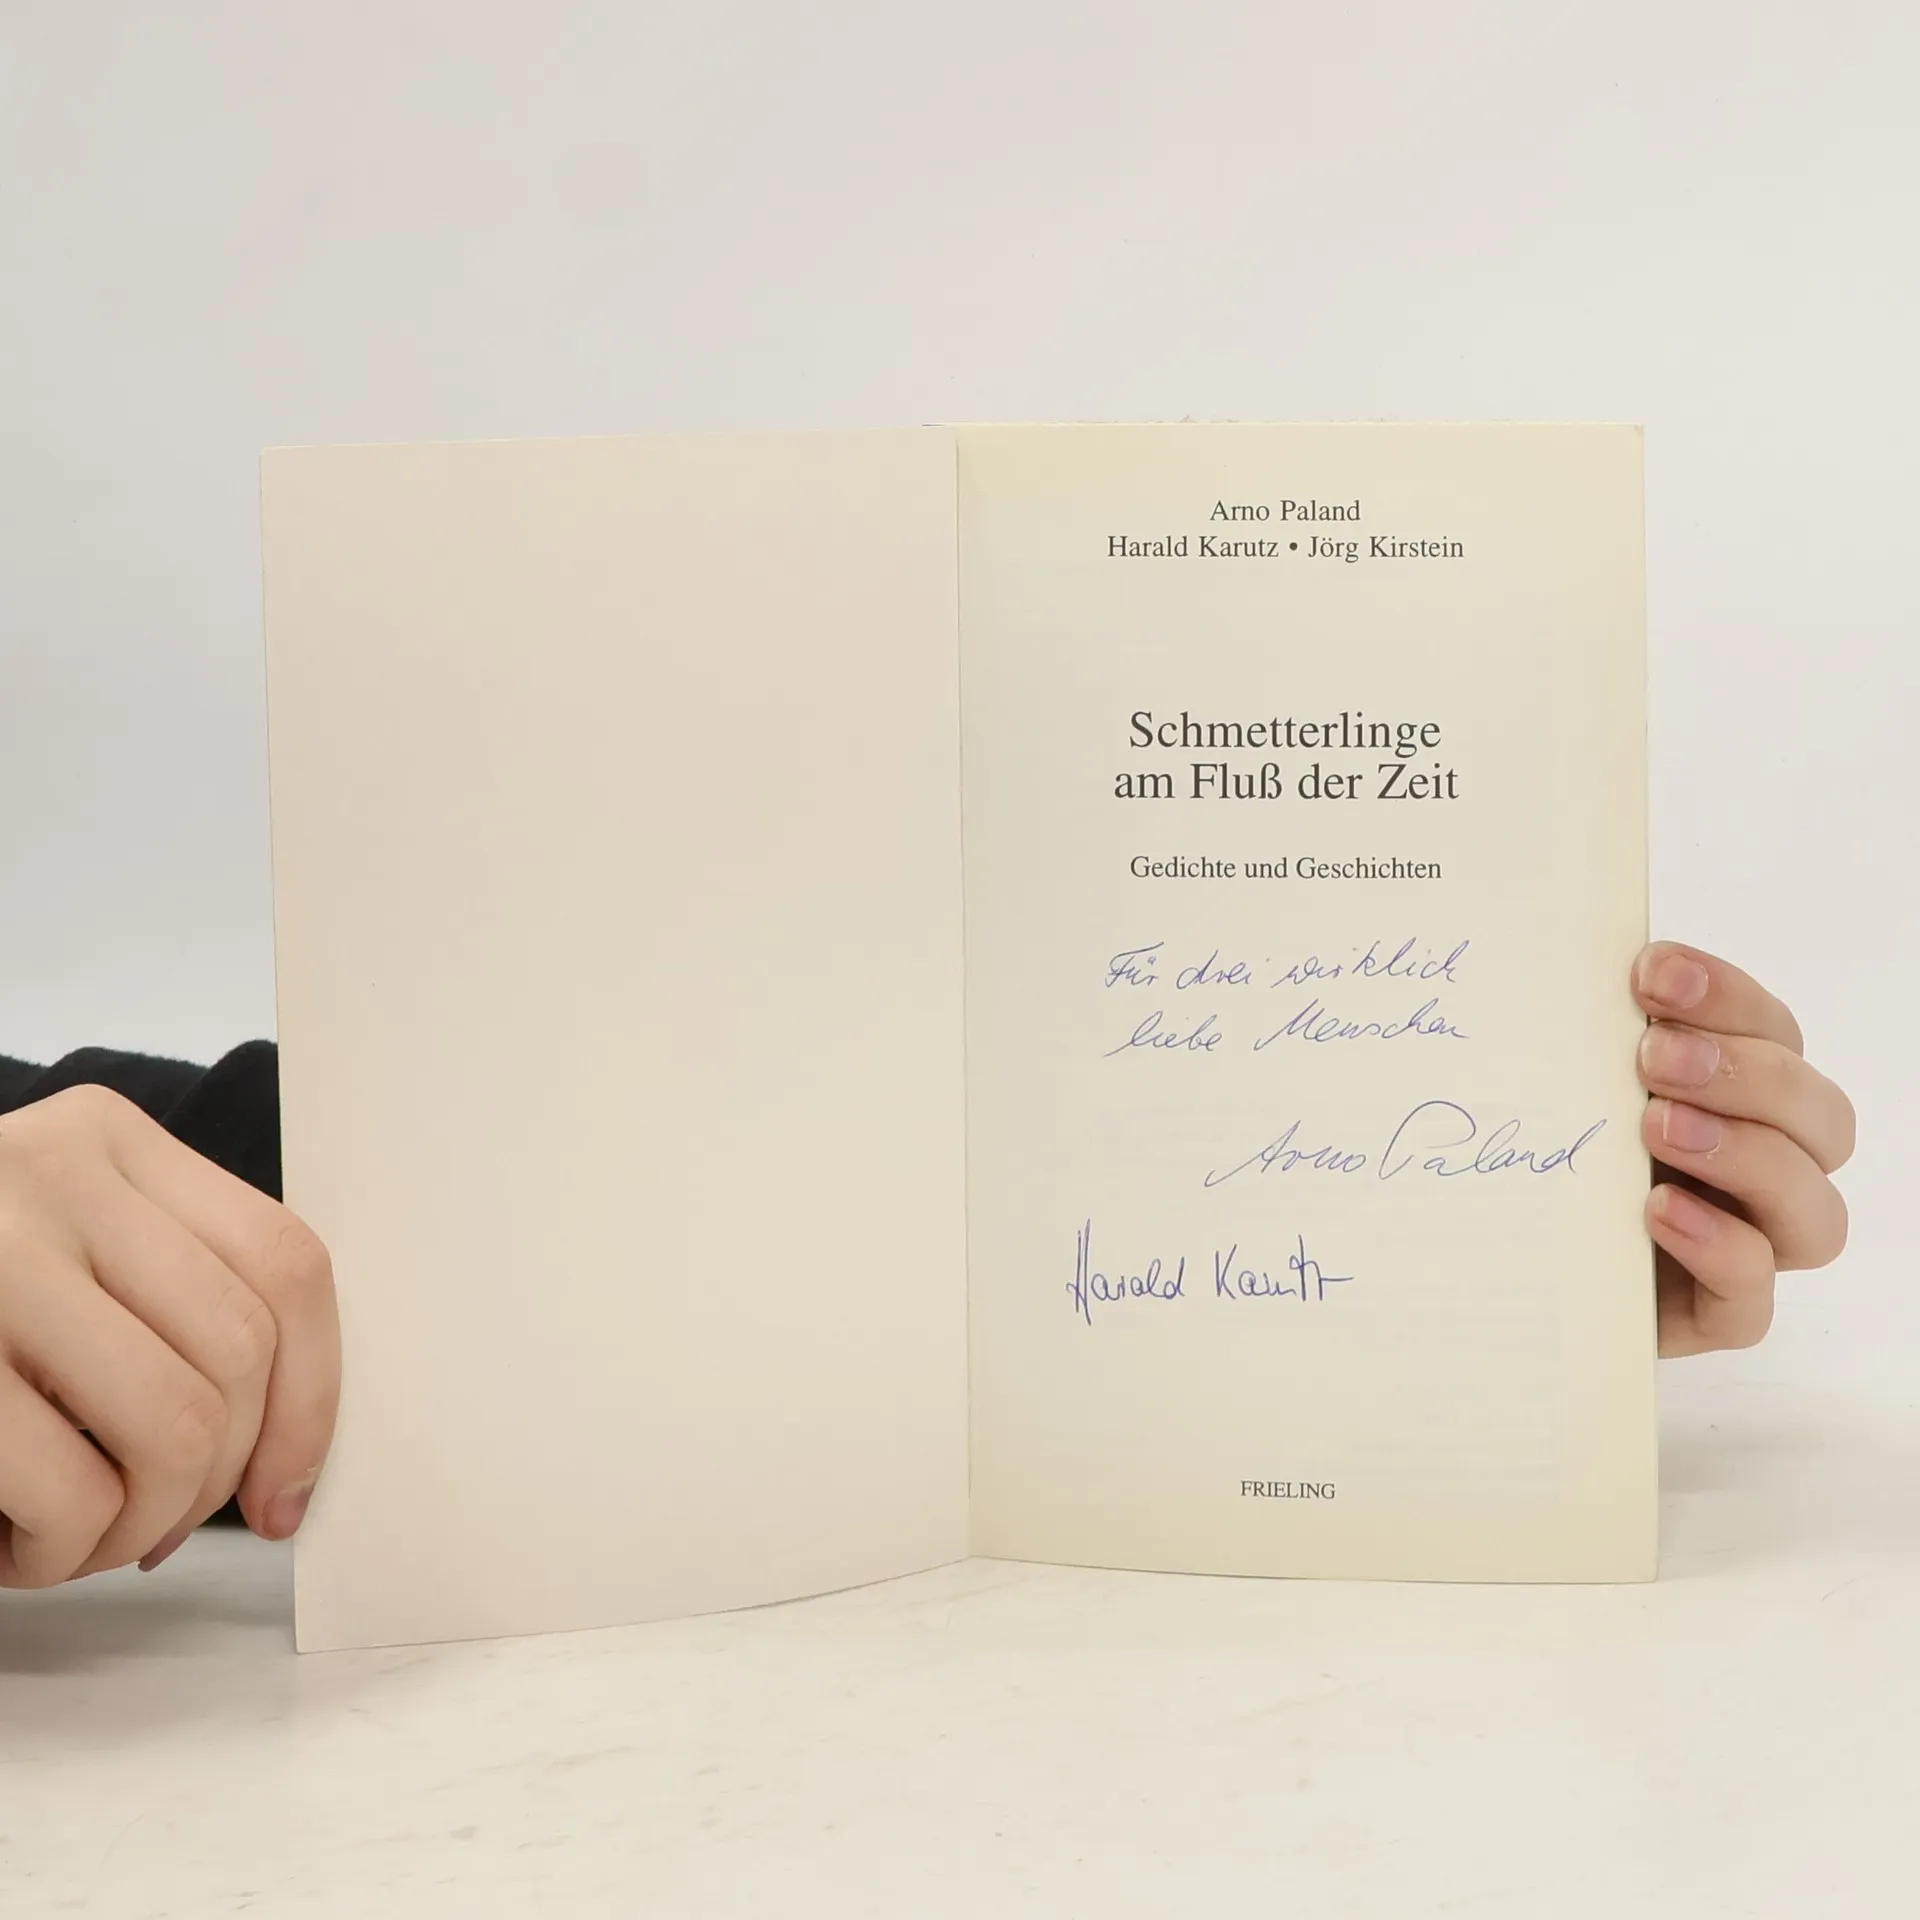 Arno Paland
Harald Karutz • Jörg Kirstein
Schmetterlinge
am Fluß der Zeit
Gedichte und Geschichten
Für drei wirklich
liebe Menschen
Arno Paland
Harald Karutz
FRIELING